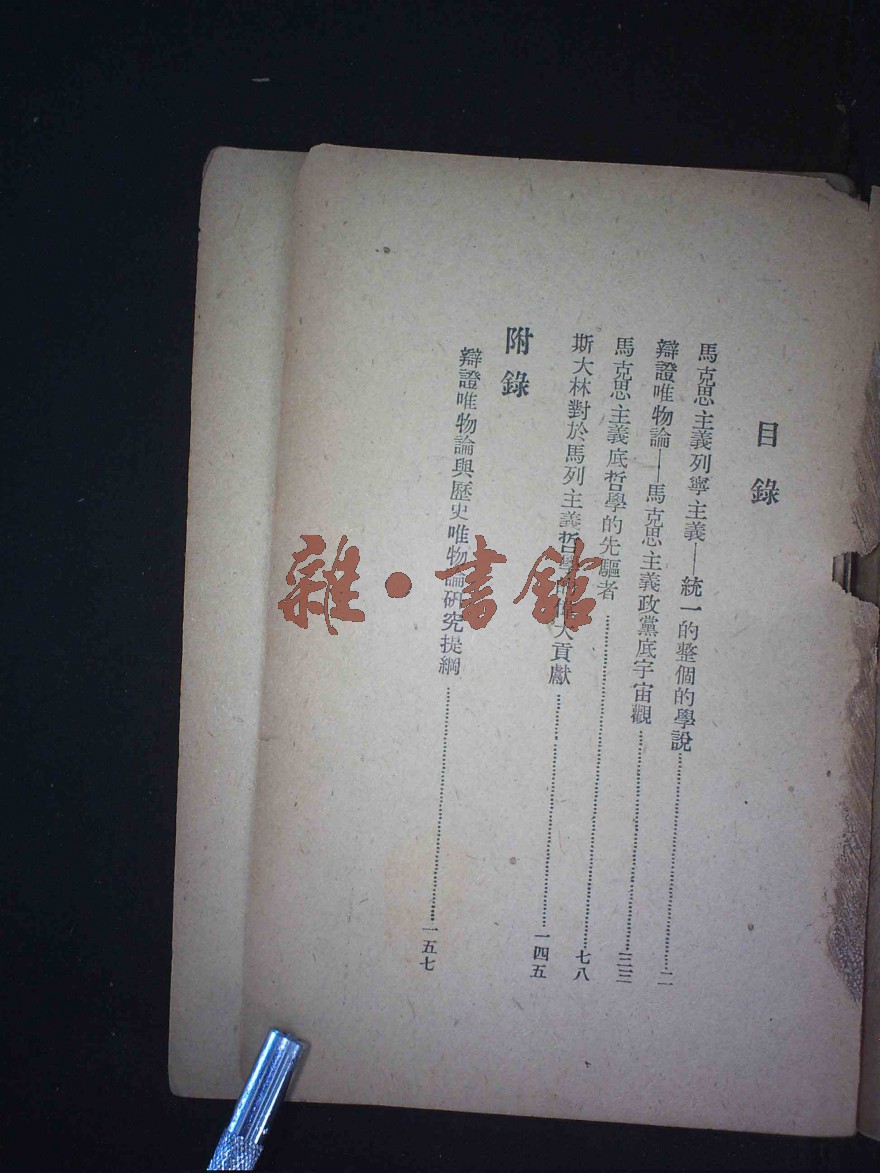 目錄
馬克思主義列寧主義——統一的整個的學說……二
辯證唯物論——馬克思主義政黨底宇宙觀……三三
馬克思主義底哲學的先驅者……七八
斯大林對於馬列主義哲學的偉大貢獻……一四五
附錄
辯證唯物論與歷史唯物論研究提綱……一五七
雜·書館